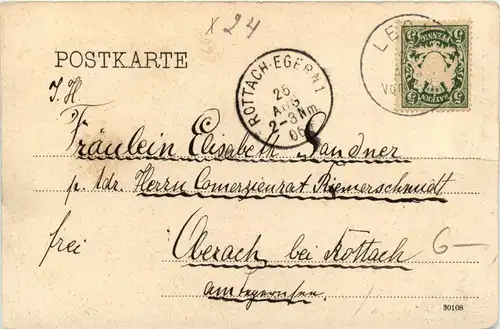 x 24
POSTKARTE
ROTTACH-EGERN 1
26
AUG
2-3 Nm
06
BAYERN
5
I. H.
Fräulein Elisabeth Sandner
p. Adr. Herrn Comerzienrat Riemerschmidt
frei Oberach bei Rottach 6—
am Tegernsee.
30108